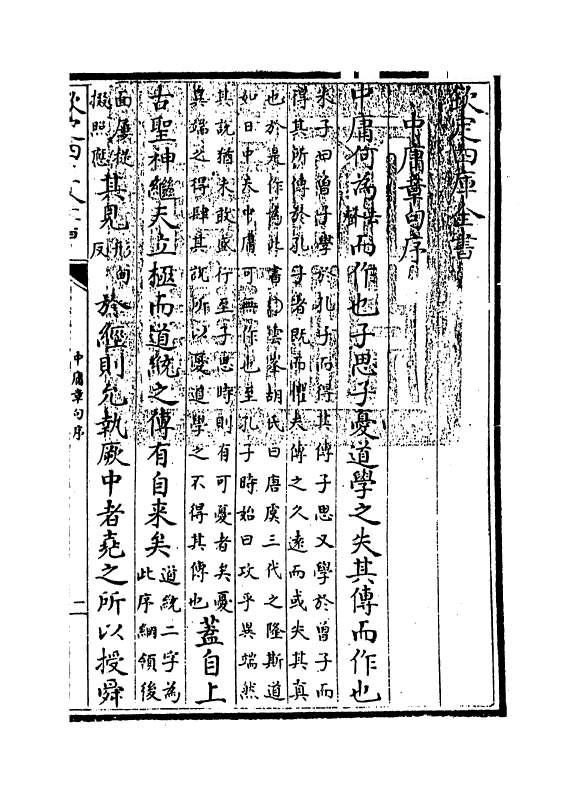 欽定四庫全書
中庸章句序
中庸何為去聲而作也子思子憂道學之失其傳而作也
朱子曰曾子學於孔子而得其傳子思又學於曾子而
得其所傳於孔子者既而懼夫傳之久遠而或失其真
也於是作為此書○雲峯胡氏曰唐虞三代之隆斯道
如日中天中庸可無作也至孔子時始曰攻乎異端然
其説猶未敢盛行至子思時則有可憂者矣憂
異端之得肆其説所以憂道學之不得其傳也蓋自上
古聖神繼天立極而道統之傳有自来矣道統二字為此序綱領後
面屢提掇照應其見形甸反於經則允執厥中者堯之所以授舜
中庸章句序
二